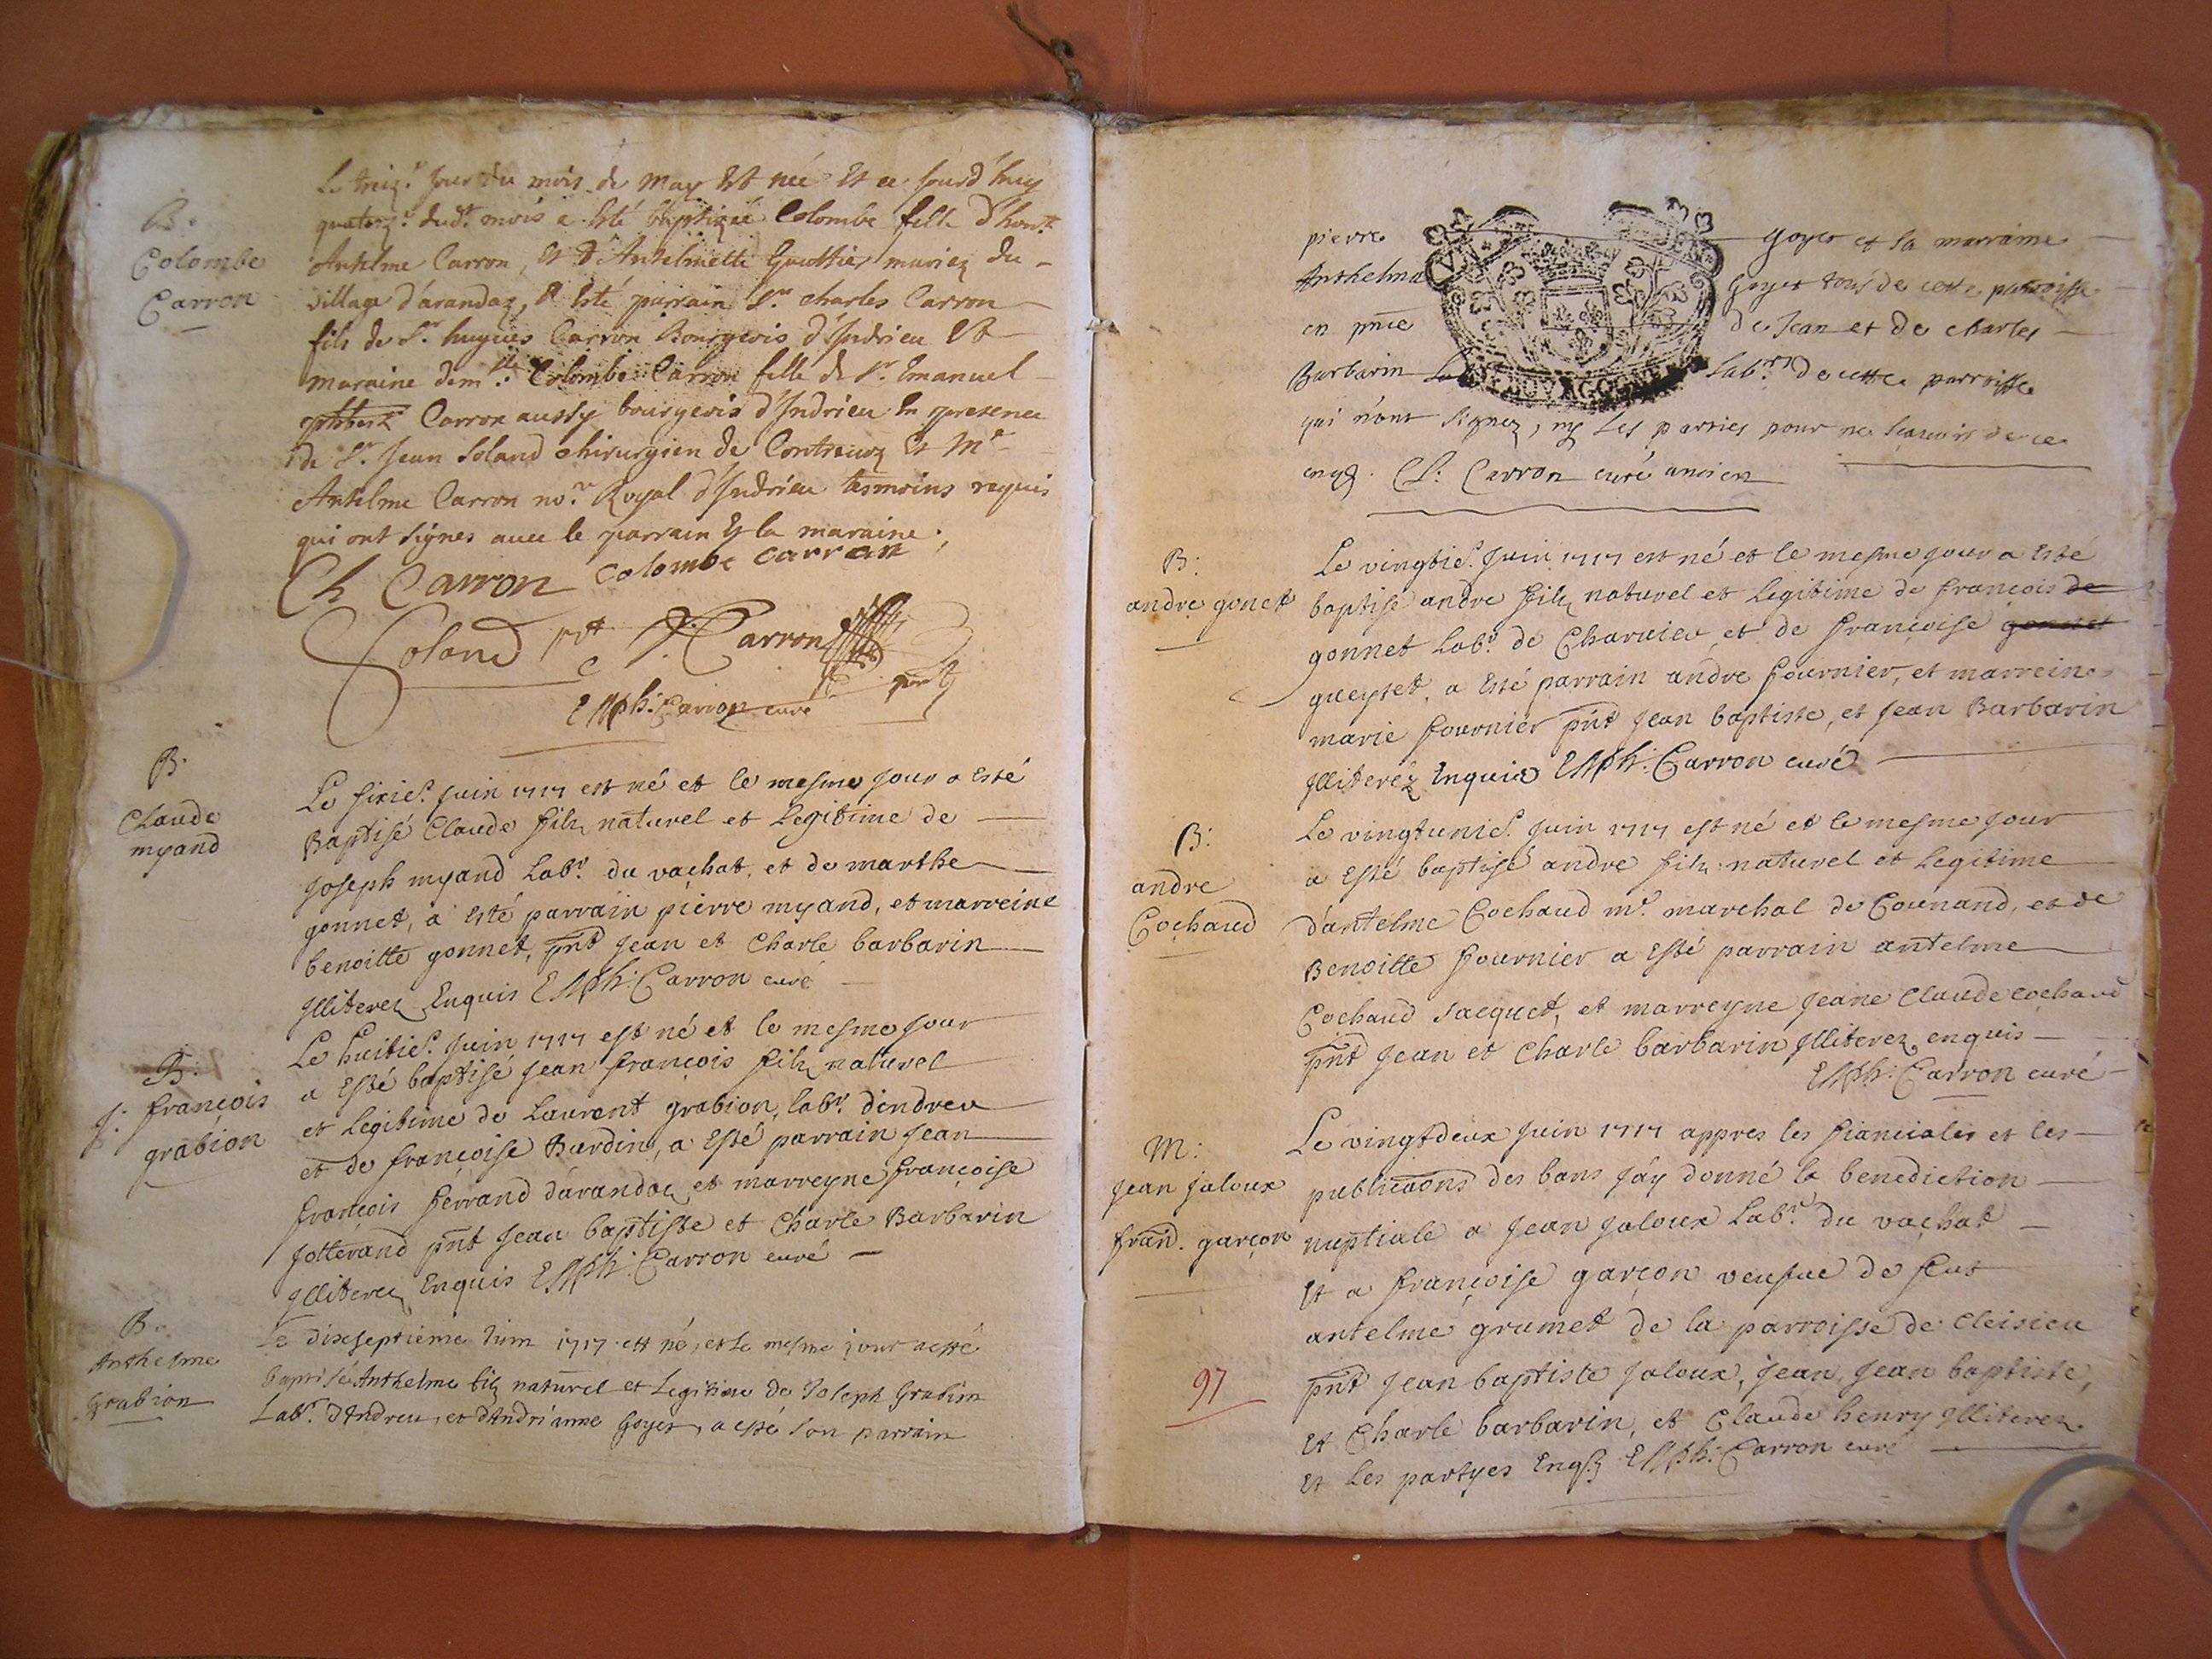 Le treiz.e jour du mois de may Est née Et ce jourd'huy
B.
quatorz.e dud.t mois a Esté baptizée Colombe fille d'hon.t
Colombe
Carron
Antelme Carron, Et d'Antelmette Gauthier mariez du
village d'arandaz, A Esté parrain S.r charles Carron
fils de S.r hugues Carron Bourgeois d'Indrieu Et
maraine dem.lle Colombe Carron fille de S.r Emanuel
philibert Carron aussy bourgeois d'Indrieu En presence
de S.r Jean Soland chirurgien de Contrevoz Et M.e
Antelme Carron no.re Royal d'Indrieu tesmoins requis
qui ont signes avec le parrain Et la maraine.
Ch Carron colombe carron
Soland pnt Carron
pnt
Carron curé
B.
Claude
myand
Le sixie.e Juin 1717 est né et le mesme jour a Esté
Baptisé Claude filz naturel et Legitime de
Joseph myand Lab.r du vachat, et de marthe
gonnet, a Esté parrain pierre myand, et marreine
benoitte gonnet, pnt Jean et Charle barbarin
Jlliterez Enquis Carron curé
B.
J: françois
grabion
Le huitie.e Juin 1717 est né et le mesme jour
a Esté baptisé Jean françois filz naturel
et Legitime de Laurent grabion, lab.r dindreu
et de françoise Burdin, a Esté parrain Jean
françois ferrand d'arandaz et marreyne françoise
Jotterand pnt Jean baptiste et Charle Barbarin
Jlliterez Enquis Carron curé
B.
Anthelme
Grabion
Le dixseptieme Juin 1717 est né, et le mesme jour a esté
baptisé Anthelme filz naturel et Legitime de Joseph Grabion
Lab.r d'Andreu, et d'Andrianne Goyet, a esté son parrain
pierre Goyet et sa marraine
Anthelma Goyet tous de cette parroisse
en pnce de Jean et de charles
Barbarin Lab.rs de cette parroisse
qui n'ont signez, ny Les parties pour ne sçavoir de ce
enqs. Carron curé ancien
B:
andre gonet
Le vingtie.e Juin 1717 est né et le mesme jour a Esté
baptisé andre filz naturel et Legitime de françois de
gonnet Lab.r de Charvieu, et de françoise gonnet
gueyset, a Esté parrain andre fournier, et marreine
marie fournier pnt Jean baptiste, et Jean Barbarin
Jlliterez Enquis Carron curé
B:
andre
Cochaud
Le vingtunie.e Juin 1717 est né et le mesme jour
a Esté baptisé andre filz naturel et Legitime
d'antelme Cochaud m.e marchal de Counand, et de
Benoitte fournier a Esté parrain antelme
Cochaud Jacquet, et marreyne Jeane Claude cochaud
pnt Jean et Charle barbarin Jlliterez enquis
Carron curé
M:
Jean Jaloux
fran. garçon
Le vingtdeux Juin 1717 appres les fianciales et les
publicaons des bans j'ay donné la benediction
nuptiale a Jean Jaloux Lab.r du vachat
Et a françoise garçon veufue de feut
antelme grumet de la parroisse de Cleisieu
97
pnt Jean baptiste Jaloux, Jean, Jean baptiste,
Et Charle barbarin, et Claude henry Jlliterez
Et Les partyes Enqs Carron curé